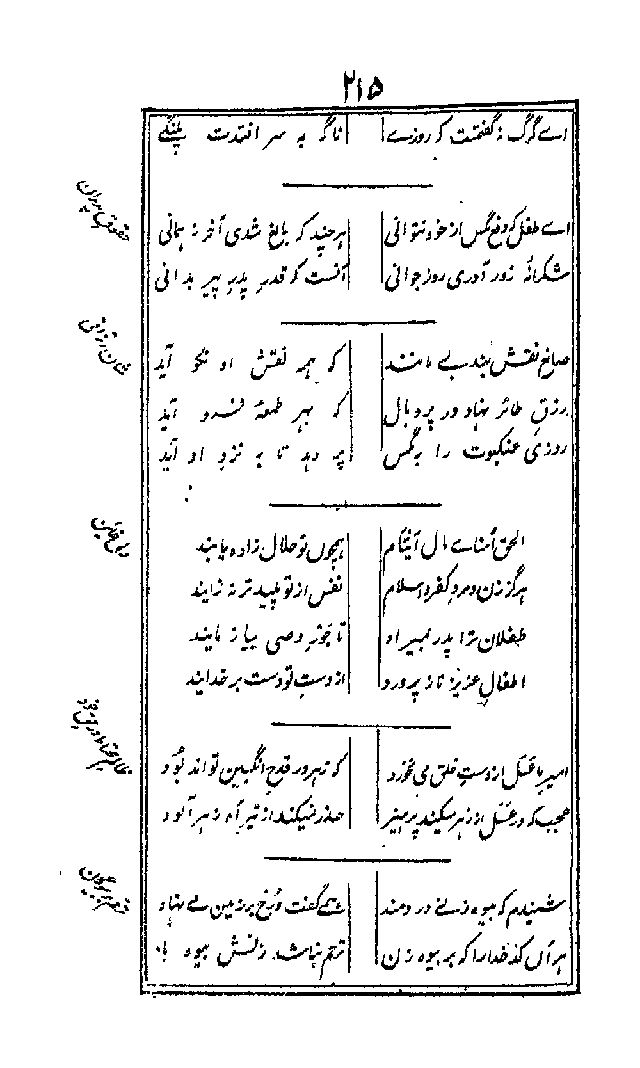 ۲۱۵
اے گرگ نگفتمت کہ روزے ناگہ بہ سر افتدت پلنگے
اے طفل کہ دفع مگس از خود نتوانی ہر چند کہ بالغ شدی آخر نہ ہمانی
شکرانہ زور آوری روز جوانی آنست کہ قدر پدر پیر بدانی
حقوق پدران
صانع نقش بند بے مانند کہ ہمہ نقش او نکو آید
رزق طائر نہاد در پر و بال کہ بہر طعمۂ فرو آید
روزی عنکبوت را بہ مگس پر دہد تا بہ نزد او آید
الحق اُمنائے مال ایتام ہمچوں تو حلال زادہ بایند
ہرگز زن و مرد و کفر و اسلام نفس از تو پلیدتر نہ زایند
طفلان ترا پدر بمیراد تا جور وصی بیازمایند
اطفال عزیز ناز پرورد از دست تو دست بر خدایند
امیر با عسل از دست خلق می نخورد کہ زہر در قدح انگبین تواند بُود
عجب کہ در عسل از زہر میکند پرہیز حذر نمیکند از تیر آہ زہر آلود
شنیدم کہ بیوہ زنے دردمند ہمے گفت و رُخ بر زمین مے نہاد
ہر آں کدخدا را کہ بر بیوہ زن ترحم نباشد زنش بیوہ باد